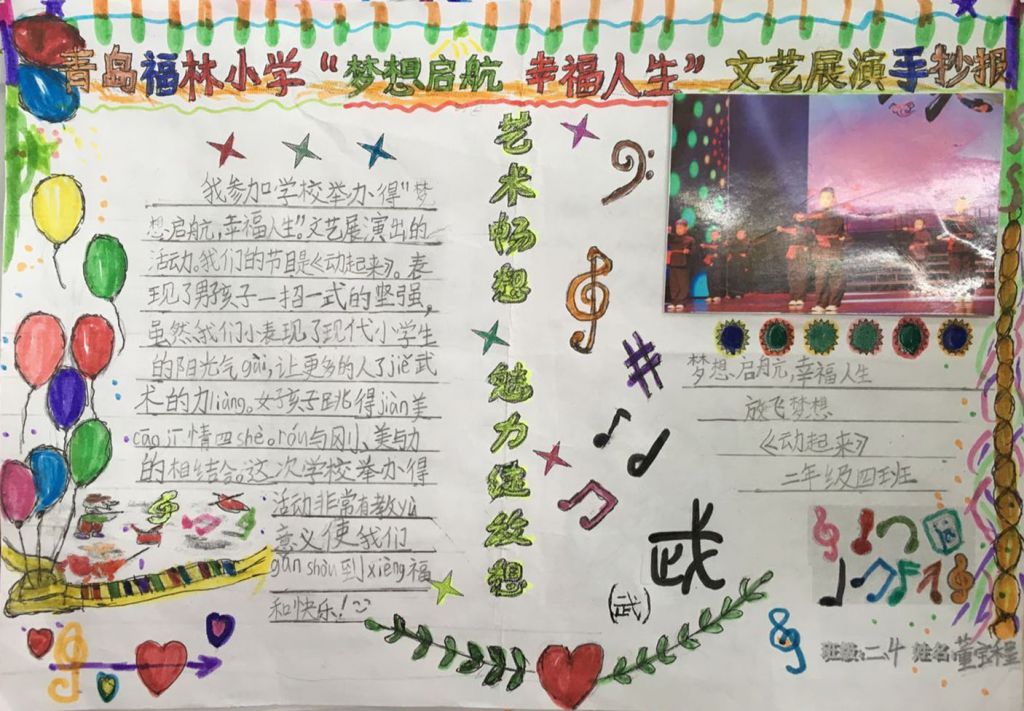 青岛福林小学“梦想启航 幸福人生”文艺展演手抄报
我参加学校举办得“梦
想启航,幸福人生”。文艺展演出的
活动。我们的节目是《动起来》。表
现了男孩子一招一式的坚强,
虽然我们小表现了现代小学生
的阳光气gài,让更多的人了jiě武
术的力liàng。女子孩子跳得jiàn美
cāo汇情四shè。róu与刚小美与力
的相结合。这次学校举办得
活动非常有教yù
意义使我们
gǎn shòu到xìng福
和快乐!
艺术畅想 魅力绽放想
梦想启航,幸福人生
放飞梦想
《动起来》
二年级四班
武
(武)
班级:二.4 姓名董宝程